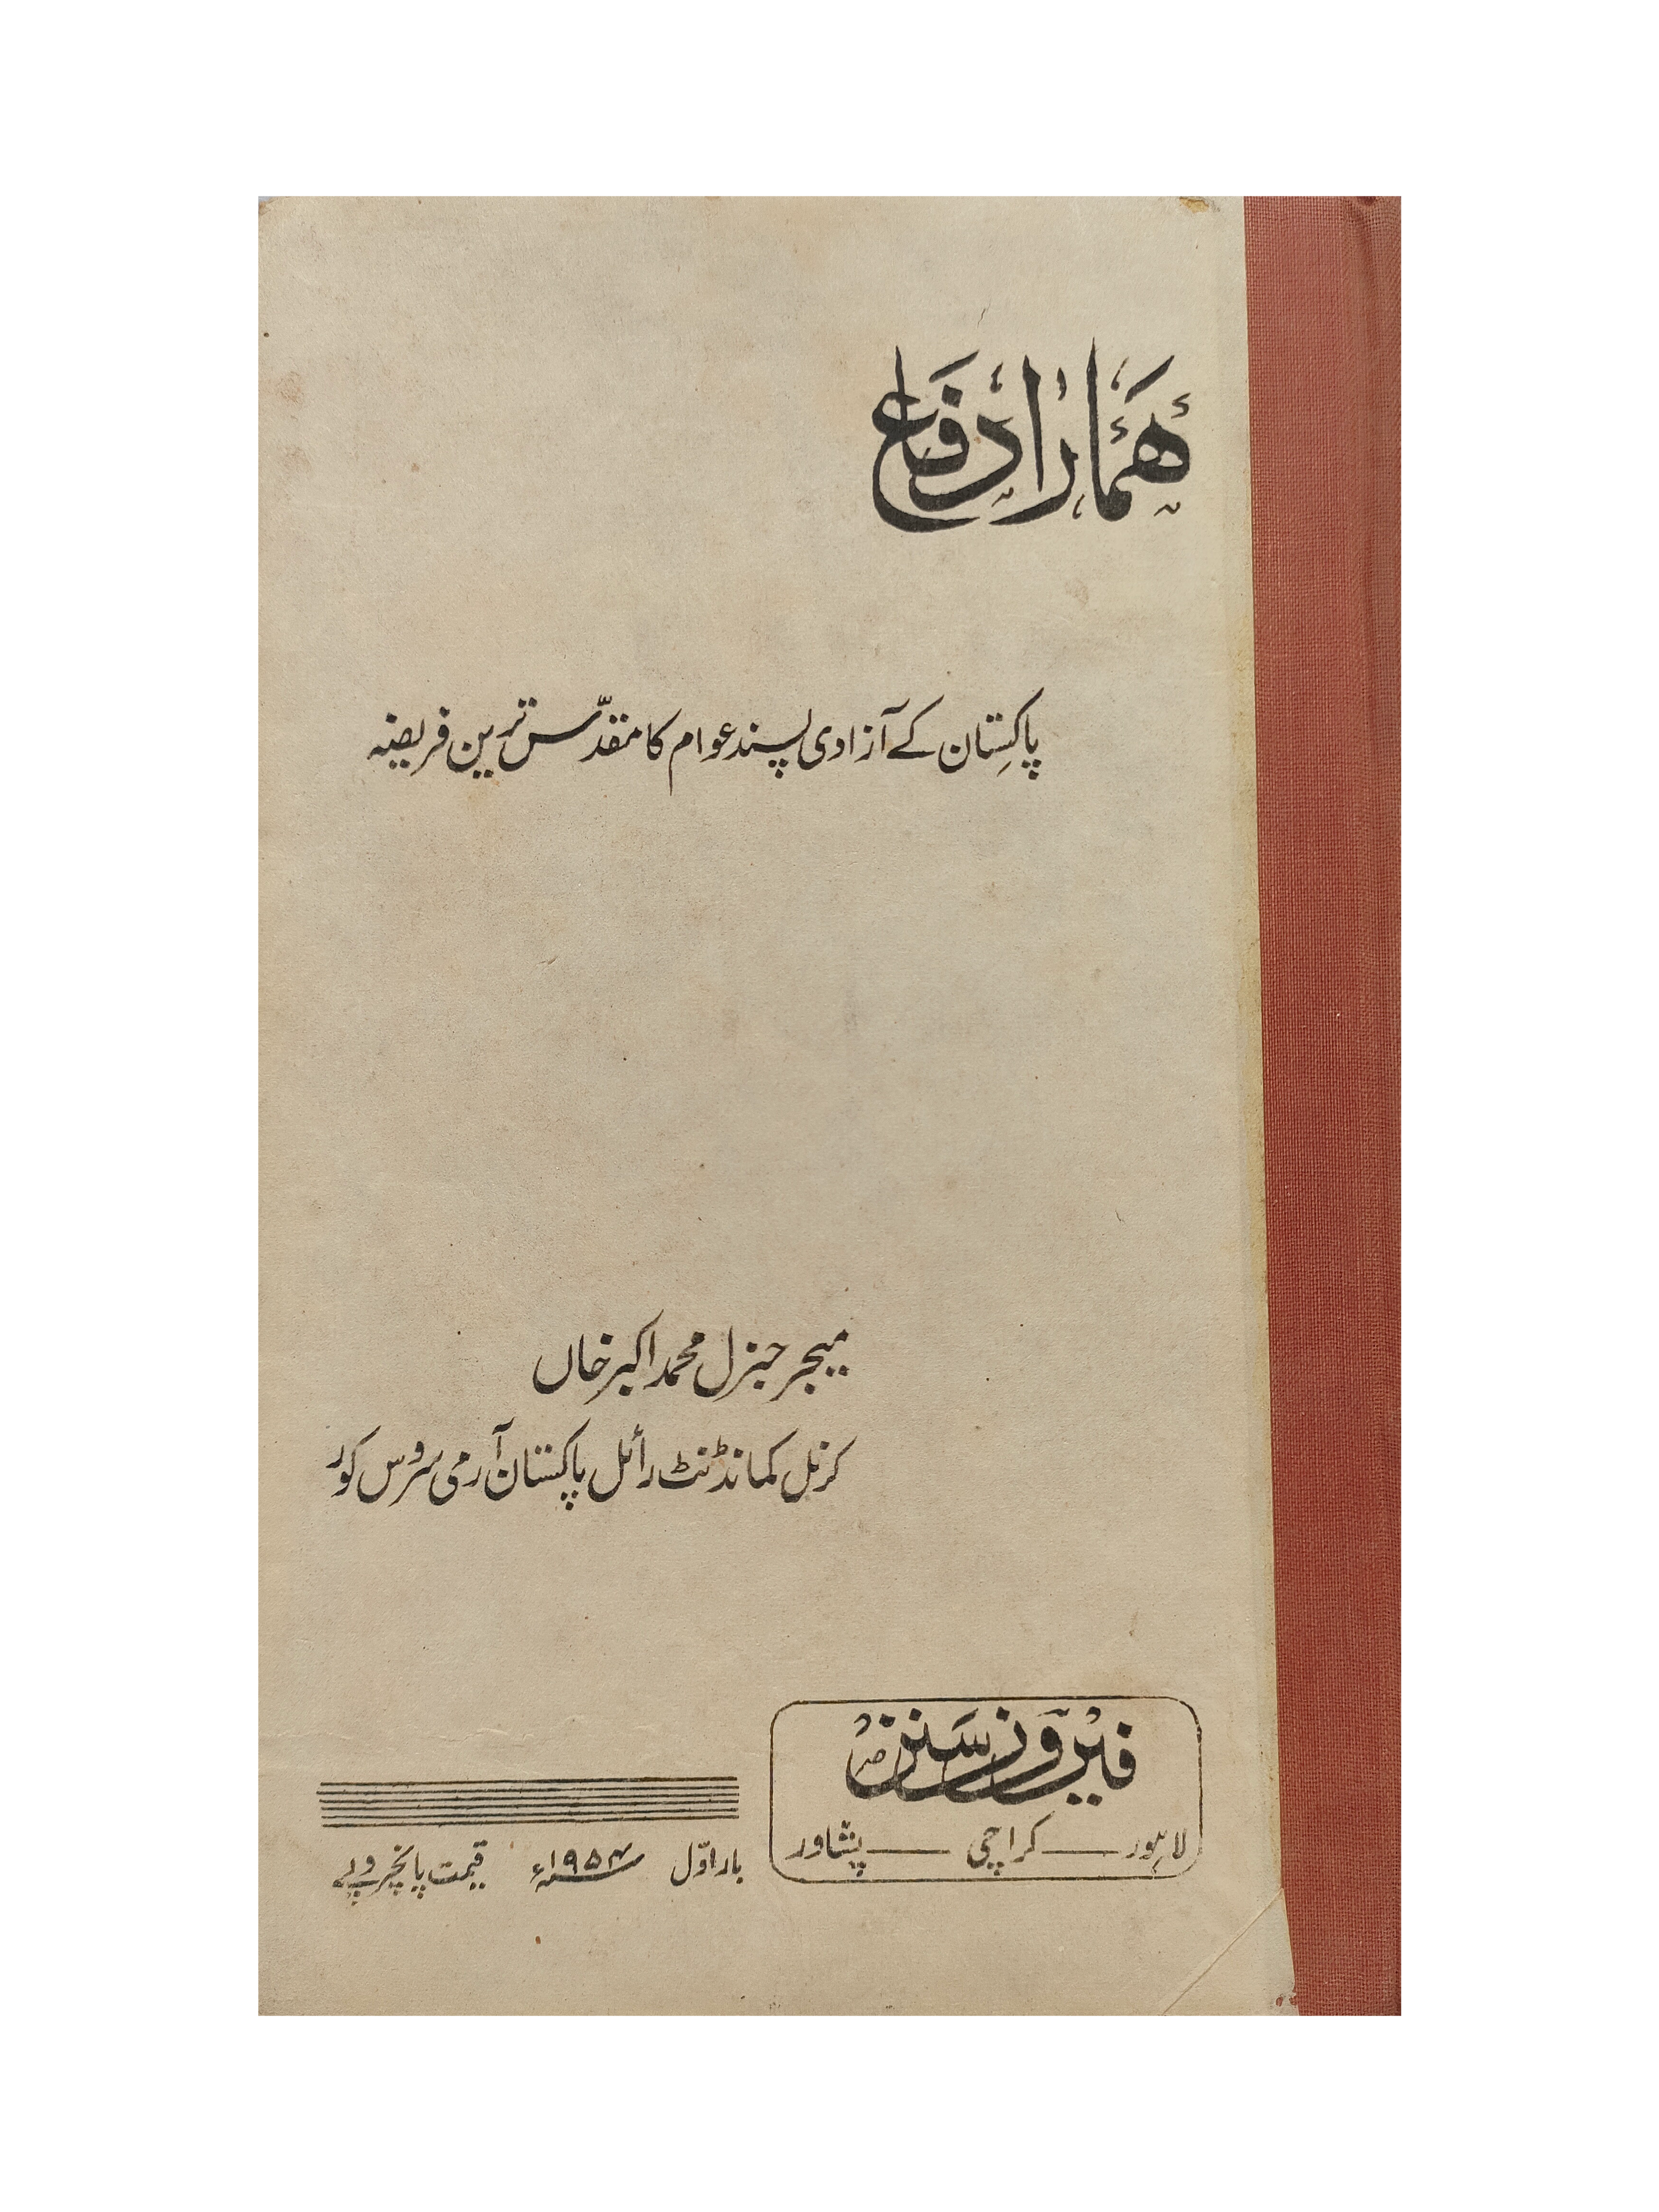 ھمارا دفاع
پاکستان کے آزادی پسند عوام کا مقدّس ترین فریضہ
میجر جنرل محمد اکبر خاں
کرنل کمانڈنٹ رائل پاکستان آرمی سروس کور
فیروز سنز
لاہور — کراچی — پشاور
بار اوّل ۱۹۵۴ء قیمت پانچروپے